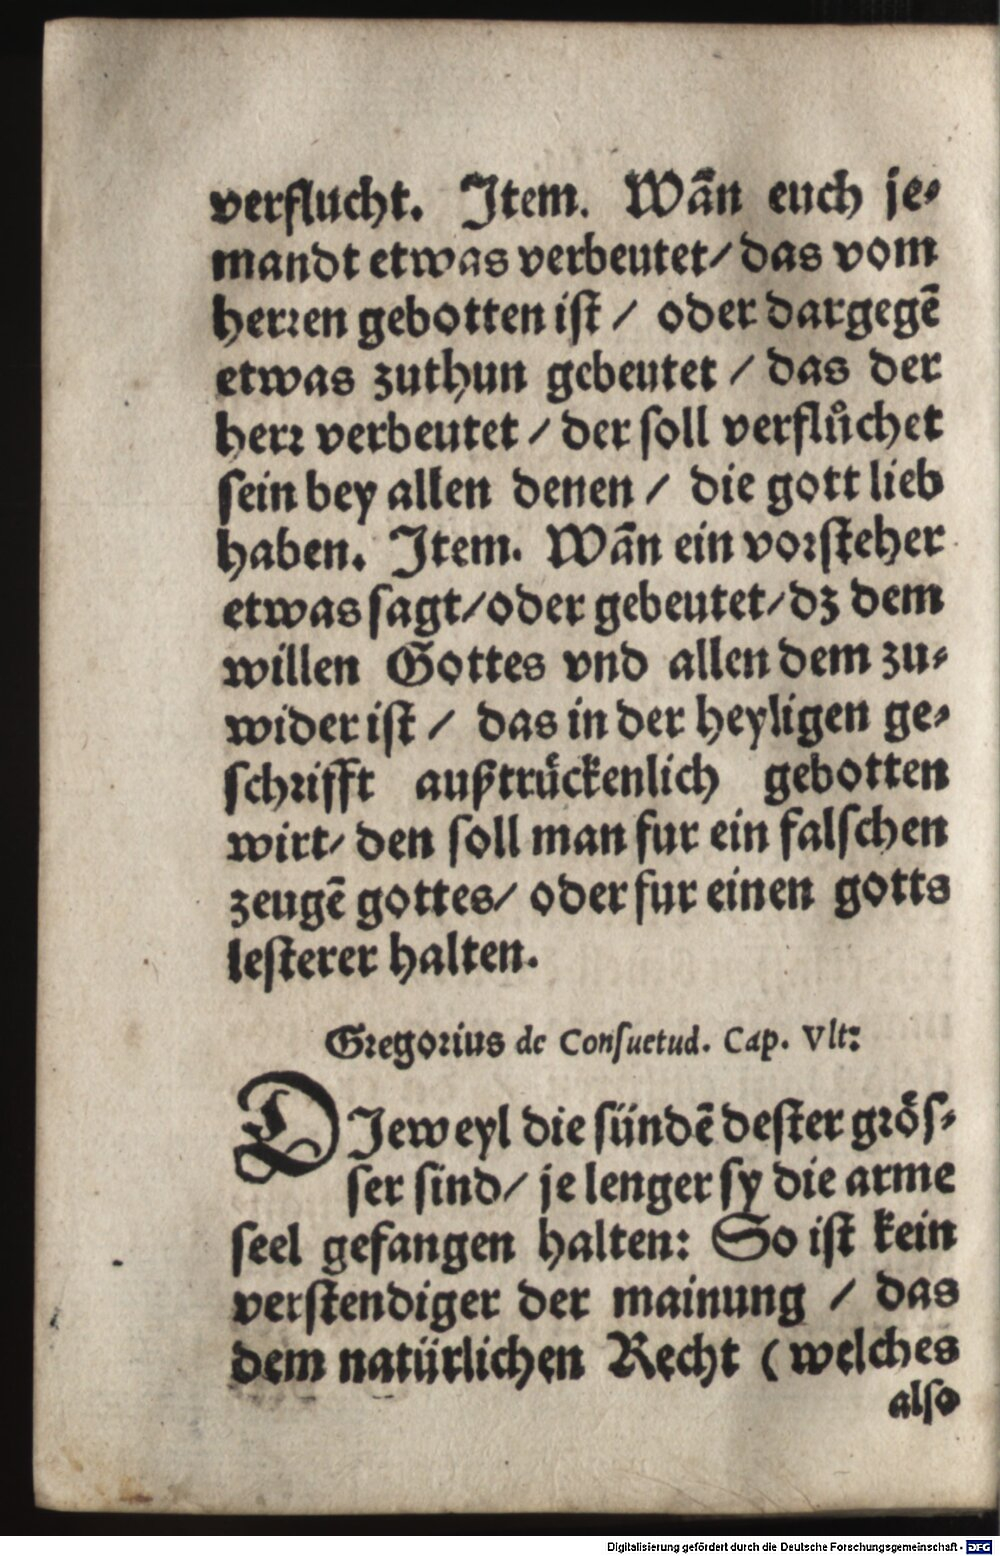 verflucht. Item. Wãn euch je⸗
mandt etwas verbeutet/ das vom
herren gebotten ist / oder dargegẽ
etwas zuthun gebeutet / das der
herr verbeutet / der soll verflůchet
sein bey allen denen / die gott lieb
haben. Item. Wãn ein vorsteher
etwas sagt/oder gebeutet/dz dem
willen Gottes vnd allen dem zu⸗
wider ist / das in der heyligen ge⸗
schrifft außtrůckenlich gebotten
wirt/ den soll man fur ein falschen
zeugẽ gottes/ oder fur einen gotts
lesterer halten.
Gregorius de Consuetud. Cap. Vlt:
DIeweyl die sündẽ dester grös⸗
ser sind/ je lenger sy die arme
seel gefangen halten: So ist kein
verstendiger der mainung / das
dem natürlichen Recht (welches
also
Digitalisierung gefördert durch die Deutsche Forschungsgemeinschaft - DFG